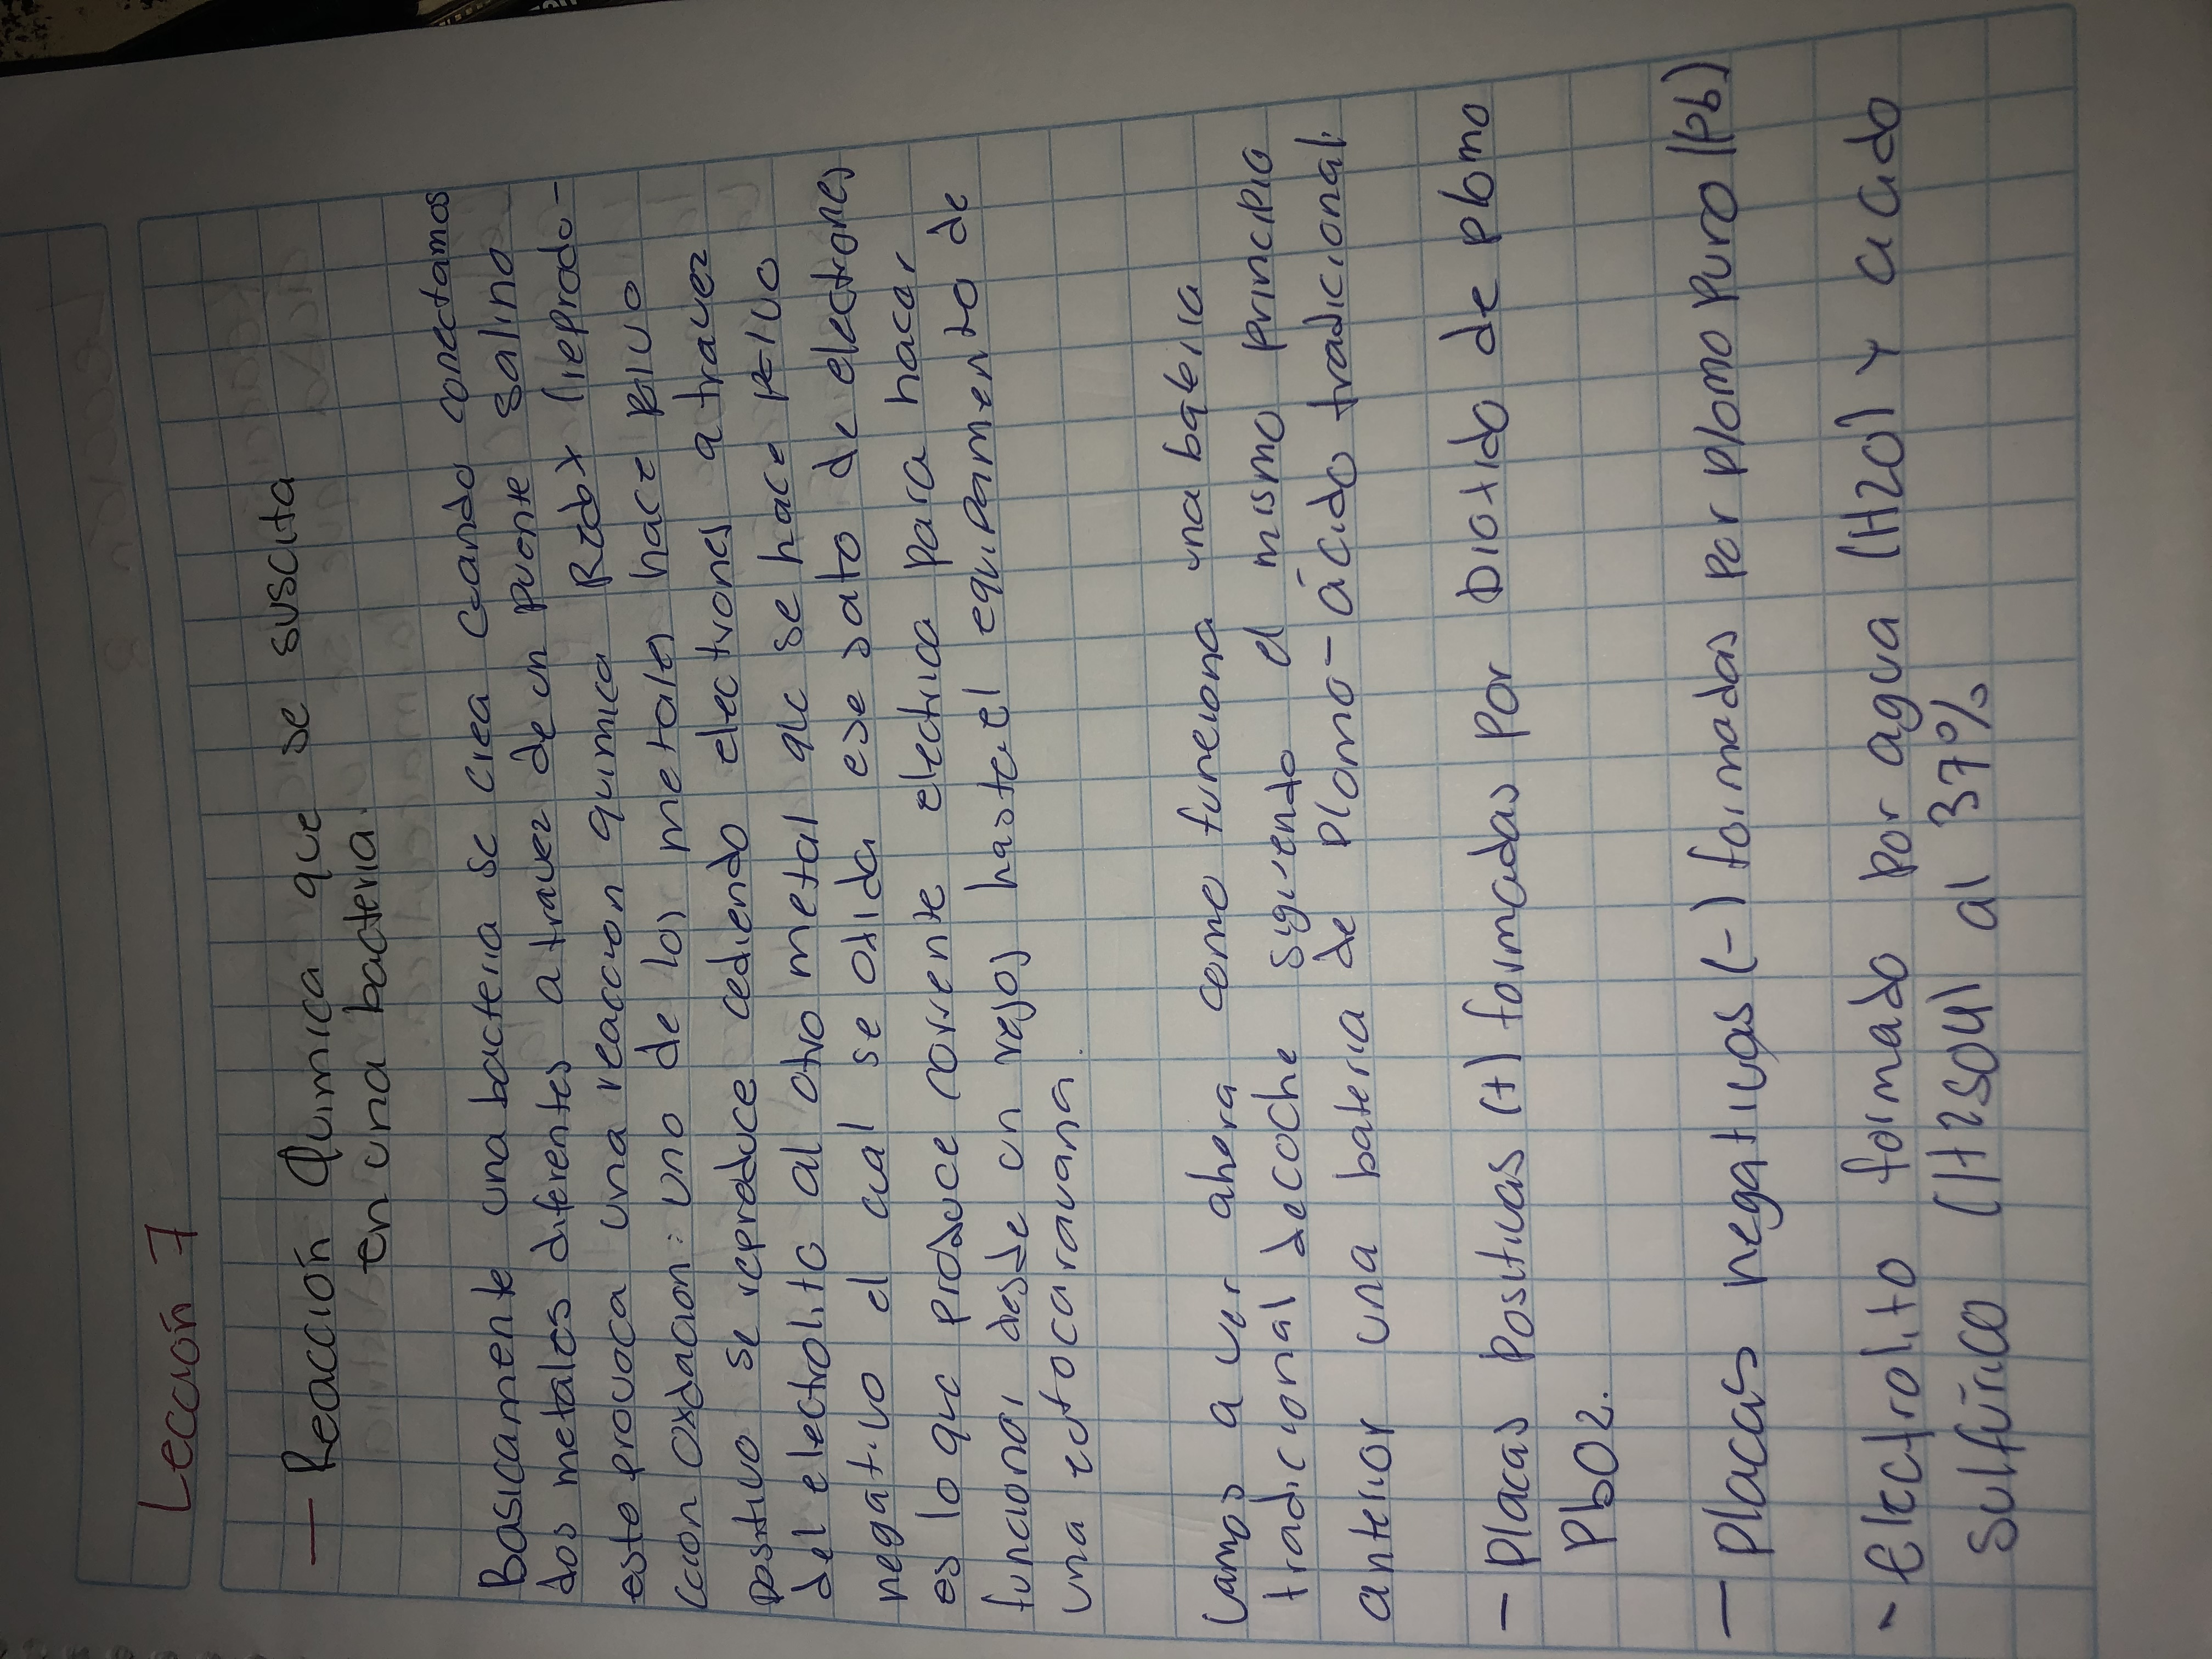 Lección 7
— Reacción Quimica que se suscita
en una bacteria.
Basicamente una bacteria se crea cuando conectamos
dos metales diferentes a travez de un puente salino
este provoca una reaccion quimica Redox (reprodu-
ccion oxdacion: uno de los metales hace
positivo se reproduce cediendo electrones a travez
del electrolito al otro metal que se hace
negativo el cual se oxida ese sato de electrones
es lo que produce corriente electrica para hacer
funcionar desde un reloj hasta el equipamento de
una autocaravana.
Vamos a ver ahora como funciona una bateria
tradicional de coche siguiendo el mismo principio
anterior una bateria de plomo-ácido tradicional.
— Placas Positivas (+) formadas por Dioxido de plomo
PbO2.
— Placas negativas (-) formadas por plomo puro (pb)
- Electrolito formado por agua (H2O) y acido
sulfúrico (H2SO4) al 37%